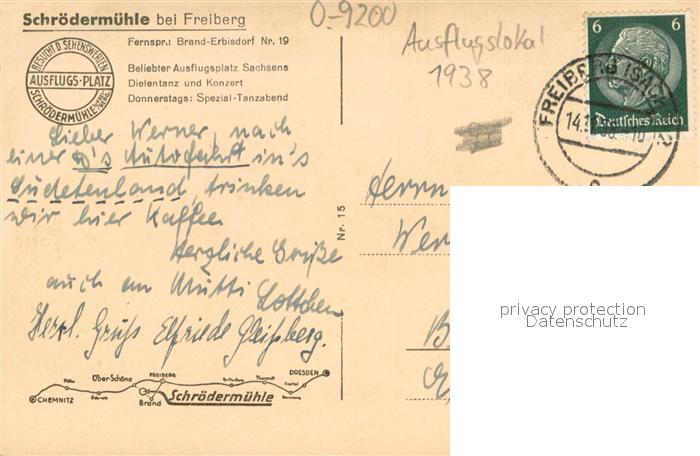 Schrödermühle bei Freiberg
Fernspr.: Brand-Erbisdorf Nr. 19
Beliebter Ausflugsplatz Sachsens
Dielentanz und Konzert
Donnerstags: Spezial-Tanzabend
BESUCHT D. SEHENSWERTEN
AUSFLUGS-PLATZ
SCHRÖDERMÜHLE
O-9200
Ausflugslokal
1938
6 6
Deutsches Reich
FREIBERG (SACHS)
Lieber Werner, nach
einer Autofahrt in's
Sudetenland, trinken
wir hier Kaffee
Herzliche Grüße
auch an Mutti
Lottchen
Herzl. Gruß Elfriede Gleißberg.
Nr. 15
Herrn
Wer
privacy protection
Datenschutz
CHEMNITZ
Flöha
Oederan
Über-Schöna
FREIBERG
Brand
Schrödermühle
Tharandt
Freital
DRESDEN